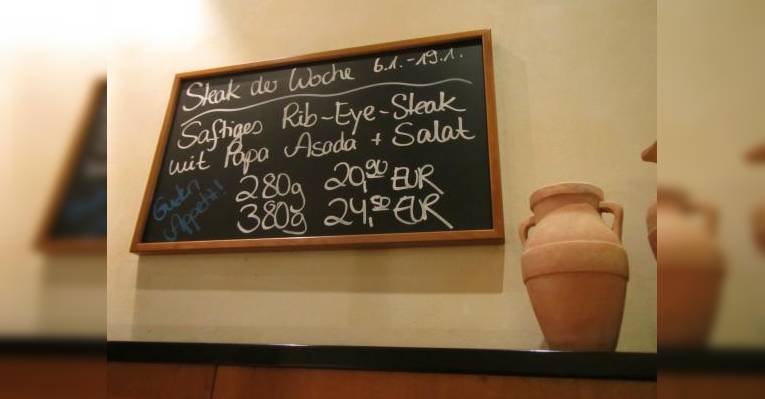 Steak der Woche 6.1.-19.1.
Saftiges Rib-Eye-Steak
mit Papa Asada + Salat
280g 20,90 EUR
380g 24,50 EUR
Guten
Appetit!